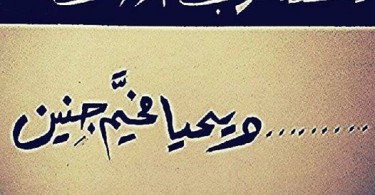 .........ويحيا مخيَّم جنين